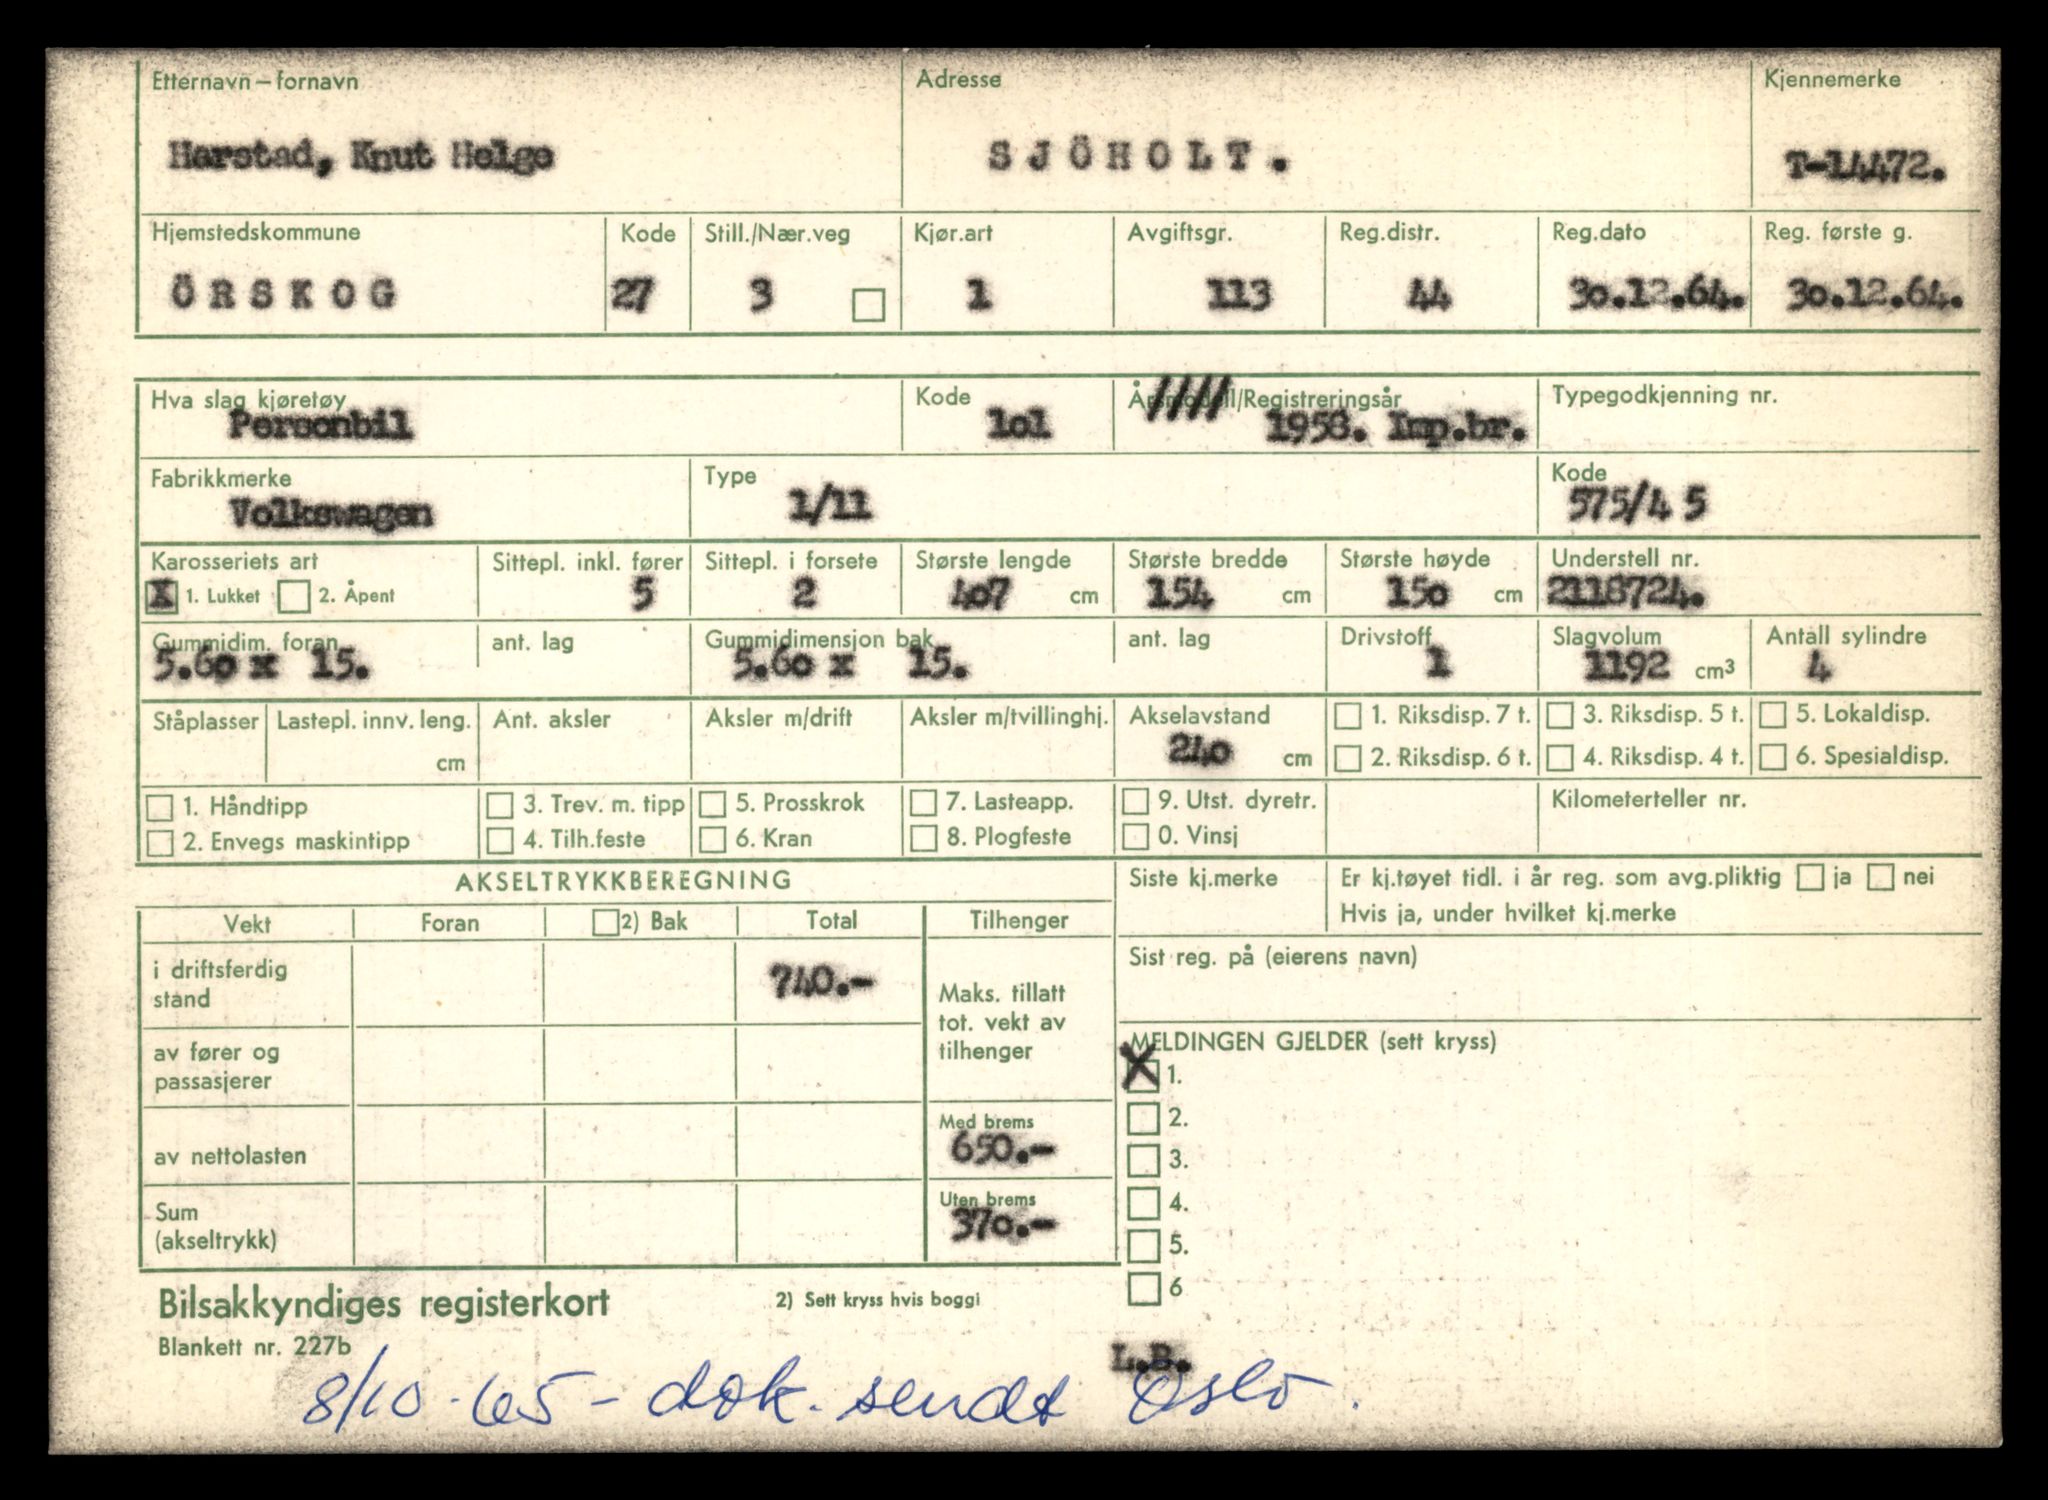 Etternavn – fornavn Adresse Kjennemerke
Harstad, Knut Helge SJÖHOLT. T-14472.
Hjemstedskommune Kode Still./Nær.veg Kjør.art Avgiftsgr. Reg.distr. Reg.dato Reg. første g.
ÖRSKOG 27 3 1 113 44 30.12.64. 30.12.64.
Hva slag kjøretøy Kode Årsmodell/Registreringsår Typegodkjenning nr.
Personbil 101 //// 1958. Imp.br.
Fabrikkmerke Type Kode
Volkswagen 1/11 575/4 5
Karosseriets art Sittepl. inkl. fører Sittepl. i forsete Største lengde Største bredde Største høyde Understell nr.
X 1. Lukket 2. Åpent 5 2 407 cm 154 cm 150 cm 2118724.
Gummidim. foran ant. lag Gummidimensjon bak ant. lag Drivstoff Slagvolum Antall sylindre
5.60 x 15. 5.60 x 15. 1 1192 cm³ 4
Ståplasser Lastepl. innv. leng. Ant. aksler Aksler m/drift Aksler m/tvillinghj. Akselavstand 1. Riksdisp. 7 t. 3. Riksdisp. 5 t. 5. Lokaldisp.
cm 240 cm 2. Riksdisp. 6 t. 4. Riksdisp. 4 t. 6. Spesialdisp.
1. Håndtipp 3. Trev. m. tipp 5. Prosskrok 7. Lasteapp. 9. Utst. dyretr. Kilometerteller nr.
2. Envegs maskintipp 4. Tilh.feste 6. Kran 8. Plogfeste 0. Vinsj
AKSELTRYKKBEREGNING Siste kj.merke Er kj.tøyet tidl. i år reg. som avg.pliktig ja nei
Hvis ja, under hvilket kj.merke
Vekt Foran 2) Bak Total Tilhenger
Sist reg. på (eierens navn)
i driftsferdig stand 740.-
Maks. tillatt tot. vekt av tilhenger
MELDINGEN GJELDER (sett kryss)
av fører og passasjerer
X 1.
2.
Med brems
650.-
av nettolasten
3.
Uten brems
370.-
4.
Sum (akseltrykk)
5.
6
Bilsakkyndiges registerkort 2) Sett kryss hvis boggi
Blankett nr. 227b
L.B.
8/10-65 - dok. sendt Oslo.